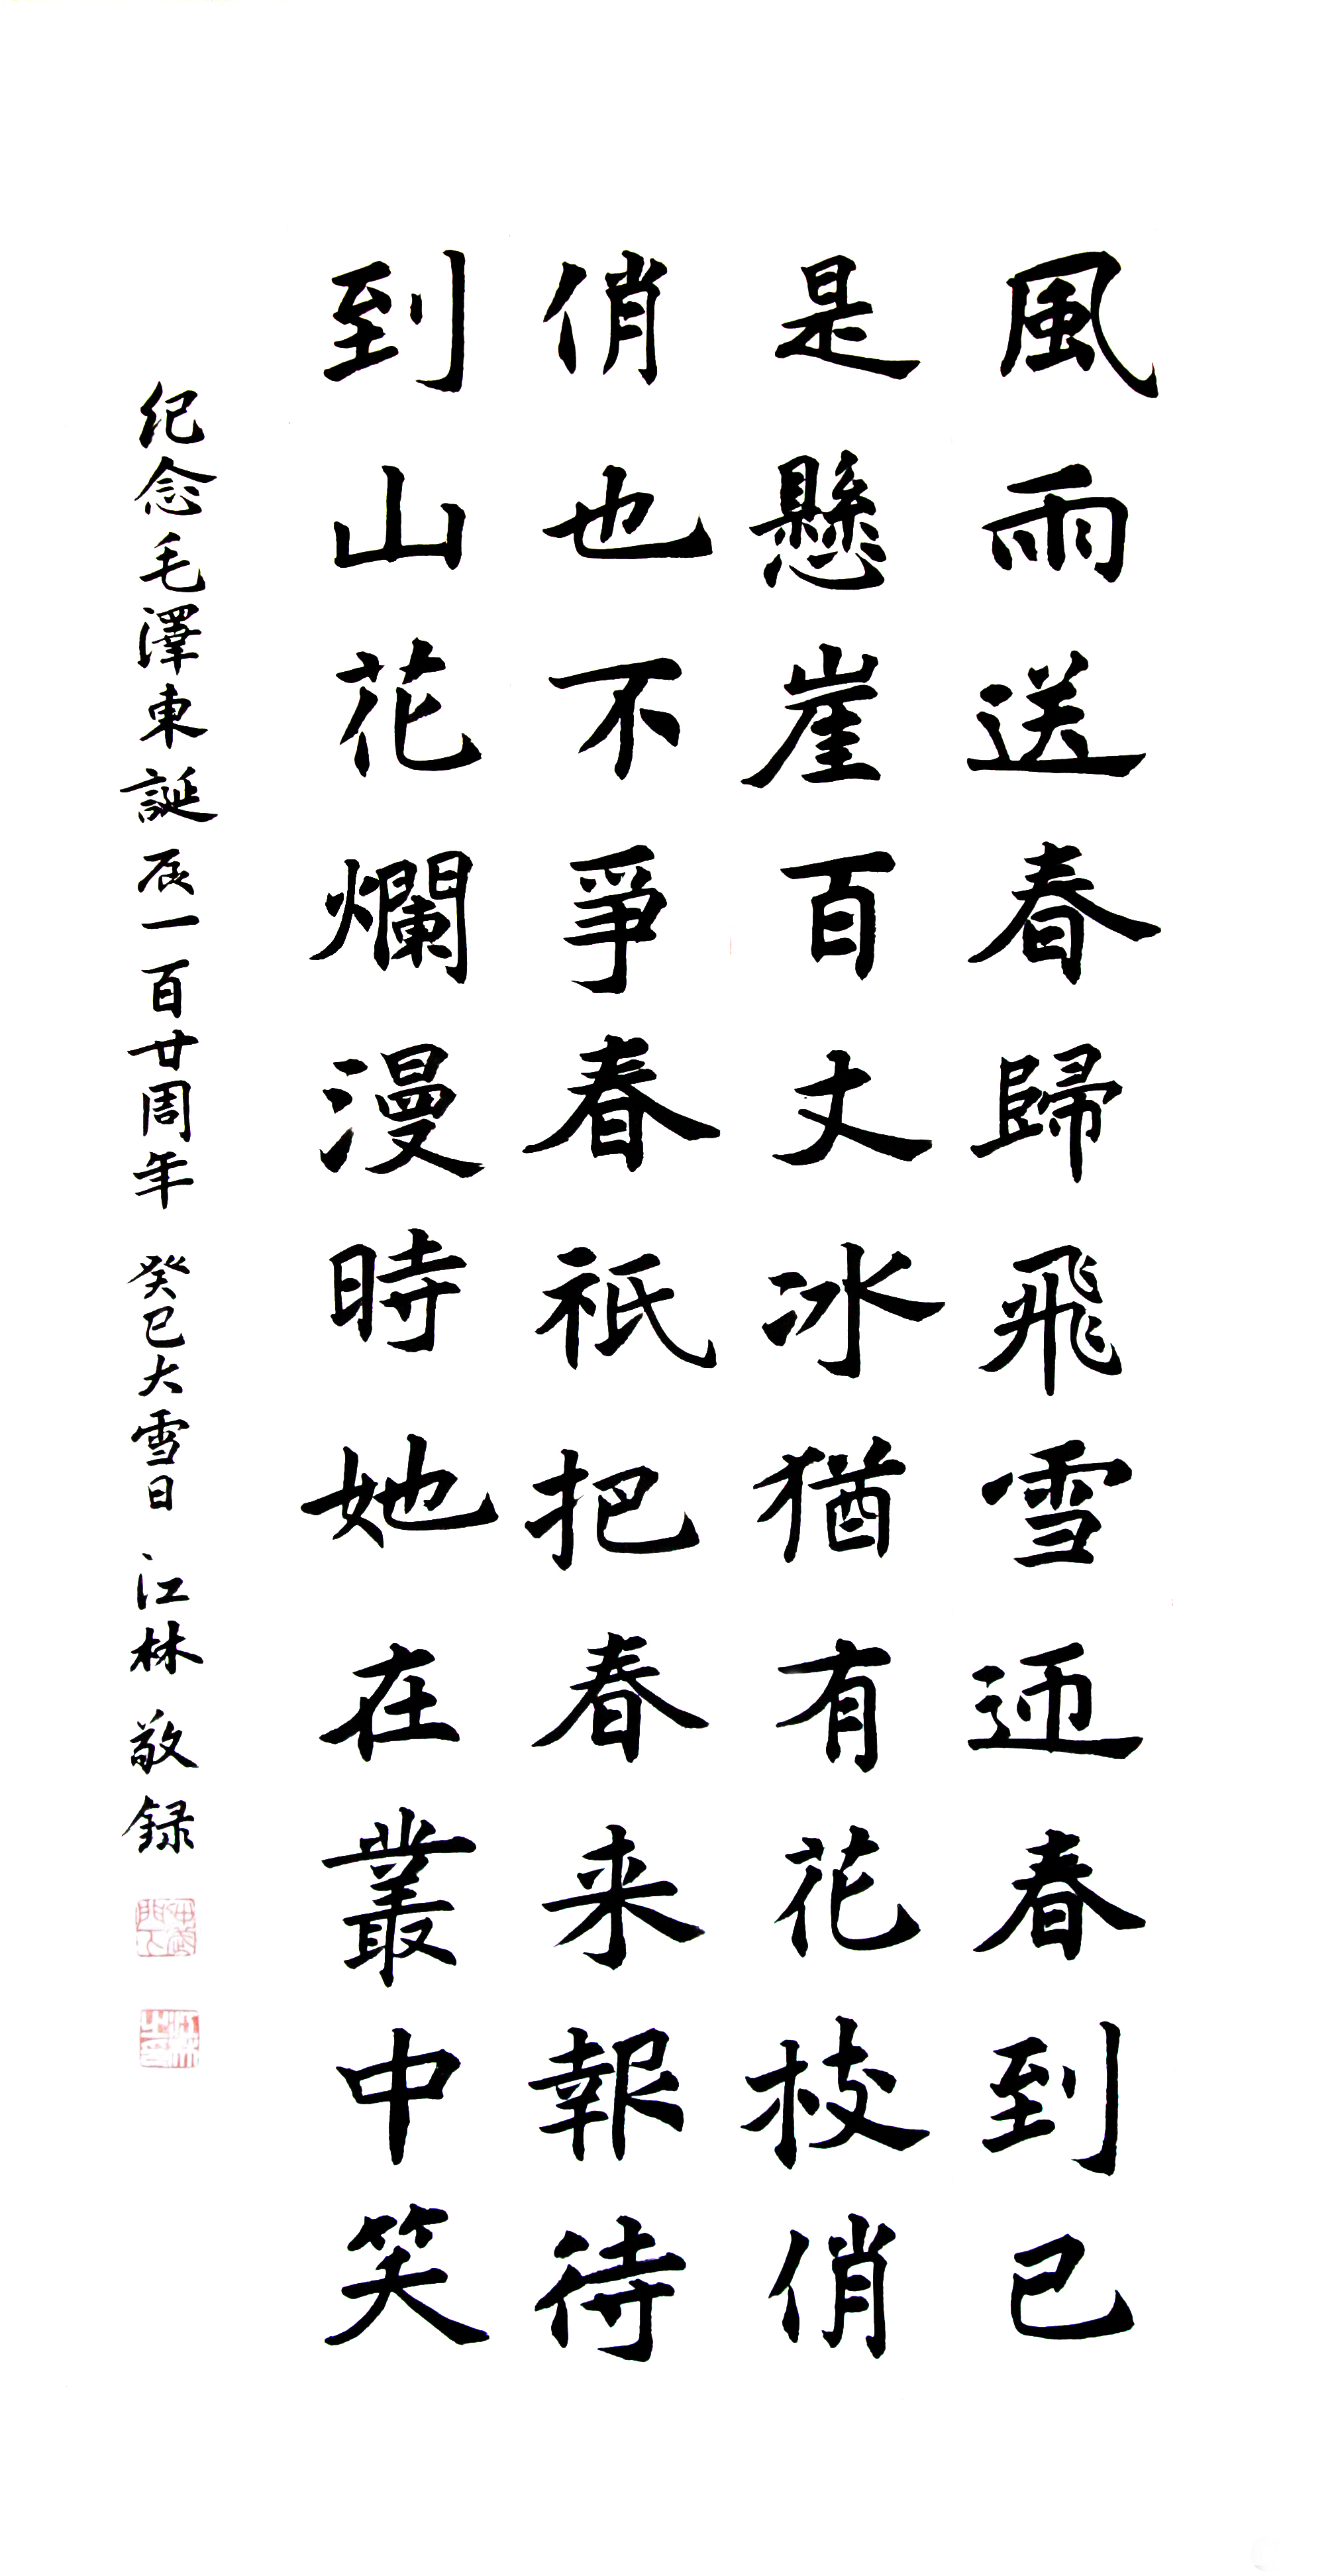 風雨送春歸飛雪迊春到已
是懸崖百丈冰猶有花枝俏
俏也不爭春祇把春来報待
到山花爛漫時她在叢中笑
纪念毛澤東誕辰一百廿周年 癸巳大雪日 江林敬録